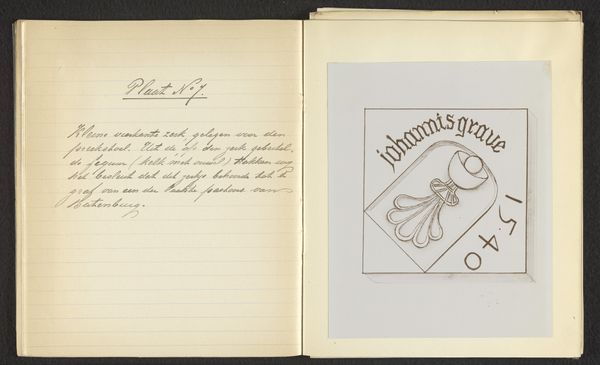 Plaat No 7.
Kleine vierkante zerk gelegen voor den
preekstoel. Uit de op den zerk gebeitel-
de figuur (kelk met ouwel) trokken wij
het besluit dat dit zerkje behoorde tot 't
graf van een der laatste pastoors van
Batenburg.
johannis graue
1540